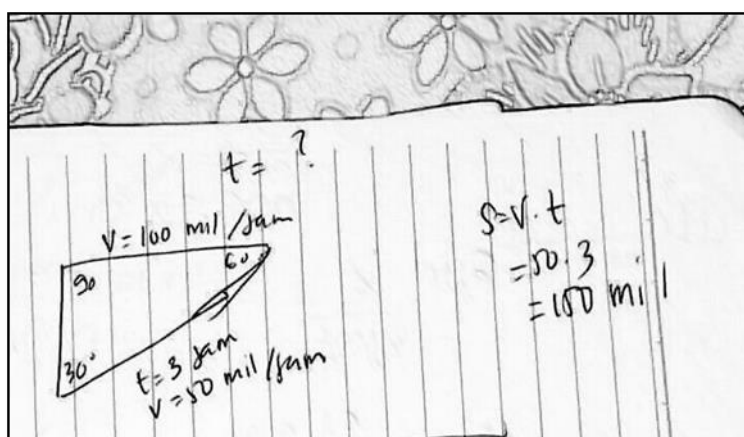 t = ?
V = 100 mil/jam
90
60
30°
t = 3 jam
V = 50 mil/jam
S = V . t
= 50 . 3
= 150 mil